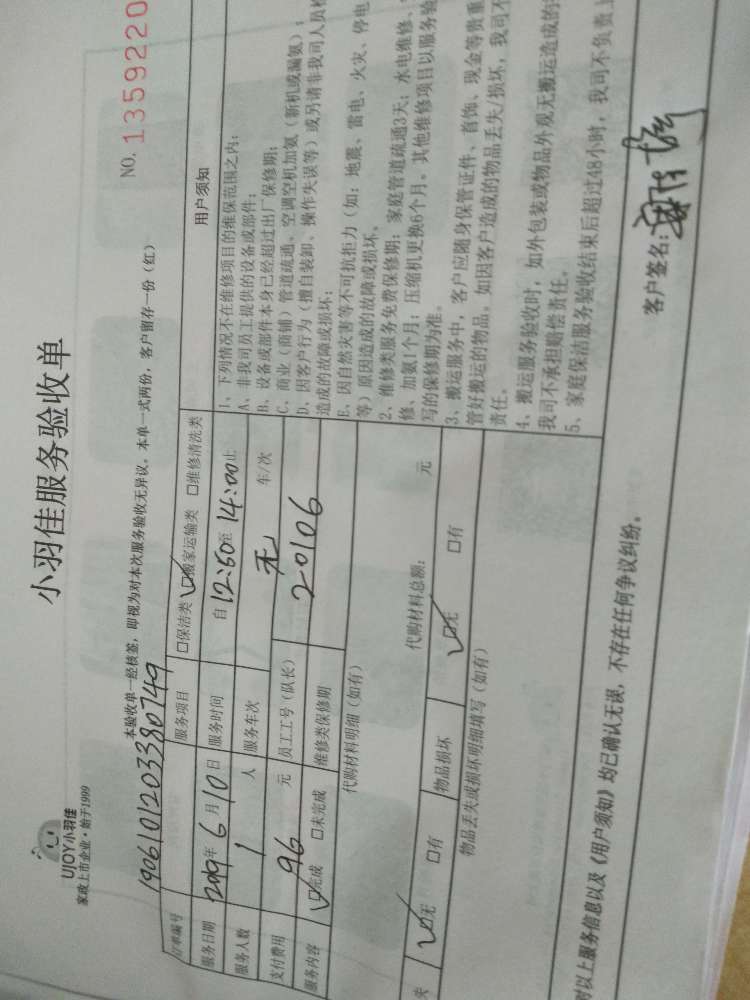 UJOY小羽佳
家政上市企业·始于1999
小羽佳服务验收单
NO. 1359220
本验收单一经核签，即视为对本次服务验收无异议。本单一式两份，客户留存一份（红）
订单编号 1906101203380749
服务项目 □保洁类 ☑搬家运输类 □维修清洗类
服务日期 2019年6月10日
服务时间 自12:50至14:00止
服务人数 1 人
服务车次 无 车/次
支付费用 96 元
员工工号（队长） 20106
服务内容 ☑完成 □未完成
维修类保修期
代购材料明细（如有）
代购材料总额： 元
失 ☑无 □有
物品损坏 ☑无 □有
物品丢失或损坏明细填写（如有）
用户须知
1、下列情况不在维修项目的维保范围之内：
A、非我司员工提供的设备或部件；
B、设备或部件本身已经超过出厂保修期；
C、商业（商铺）管道疏通、空调空机加氨（新机或漏氨）；
D、因客户行为（擅自装卸、操作失误等）或另请非我司人员
造成的故障或损坏；
E、因自然灾害等不可抗拒力（如：地震、雷电、火灾、停电
等）原因造成的故障或损坏。
2、维修类服务免费保修期：家庭管道疏通3天；水电维修、
修、加氨1个月；压缩机更换6个月。其他维修项目以服务验
写的保修期为准。
3、搬运服务中，客户应随身保管证件、首饰、现金等贵重
管好搬运的物品。如因客户造成的物品丢失/损坏，我司不
责任。
4、搬运服务验收时，如外包装或物品外观无搬运造成的
我司不承担赔偿责任。
5、家庭保洁服务验收结束后超过48小时，我司不负责
对以上服务信息以及《用户须知》均已确认无误，不存在任何争议纠纷。
客户签名：